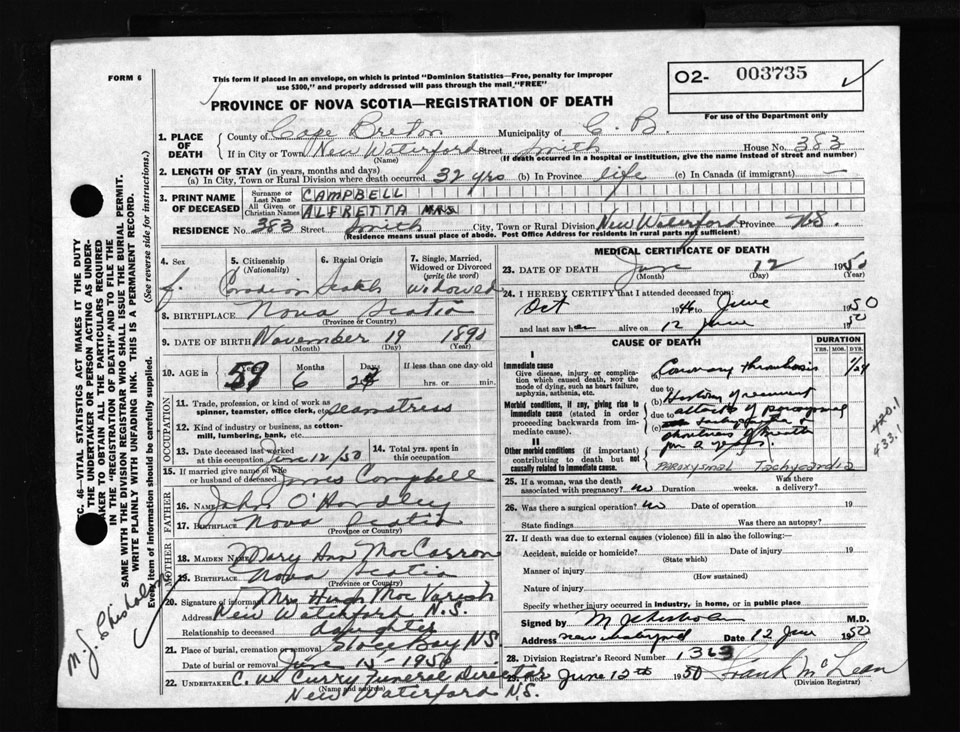 FORM 6
This form if placed in an envelope, on which is printed "Dominion Statistics—Free, penalty for improper
use $300," and properly addressed will pass through the mail "FREE"
O2- 003735 ✓
For use of the Department only
PROVINCE OF NOVA SCOTIA—REGISTRATION OF DEATH
1. PLACE OF DEATH
County of Cape Breton Municipality of C. B.
If in City or Town New Waterford Street Smith House No. 383
(Name) (If death occurred in a hospital or institution, give the name instead of street and number)
2. LENGTH OF STAY (in years, months and days)
(a) In City, Town or Rural Division where death occurred 32 yrs (b) In Province life (c) In Canada (if immigrant) —
3. PRINT NAME OF DECEASED
Surname or Last Name CAMPBELL
All Given or Christian Names ALFRETTA MRS
RESIDENCE No. 383 Smith City, Town or Rural Division New Waterford Province N.S.
(Residence means usual place of abode. Post Office Address for residents in rural parts not sufficient)
4. Sex f.
5. Citizenship (Nationality) Canadian
6. Racial Origin Scotch
7. Single, Married, Widowed or Divorced (write the word) Widowed
8. BIRTHPLACE Nova Scotia
(Province or Country)
9. DATE OF BIRTH November 19 1890
(Month) (Day) (Year)
10. AGE in Years 59 Months 6 Days 24 If less than one day old
hrs. or min.
OCCUPATION
11. Trade, profession, or kind of work as
spinner, teamster, office clerk, etc. Seamstress
12. Kind of industry or business, as cotton-
mill, lumbering, bank, etc.
13. Date deceased last worked at this occupation Jun 12/50
14. Total yrs. spent in this occupation.
15. If married give name of wife
or husband of deceased James Campbell
FATHER
16. Name John O'Handley
17. Birthplace Nova Scotia
(Province or Country)
MOTHER
18. Maiden Name Mary Ann MacCarron
19. Birthplace Nova Scotia
(Province or Country)
20. Signature of informant Mrs Hugh MacVarish
Address New Waterford N.S.
Relationship to deceased daughter
21. Place of burial, cremation or removal Glace Bay N.S.
Date of burial or removal June 15-1950
22. UNDERTAKER C. W. Curry Funeral Director
(Name and address)
New Waterford N.S.
MEDICAL CERTIFICATE OF DEATH
23. DATE OF DEATH June 12 1950
(Month) (Day) (Year)
24. I HEREBY CERTIFY that I attended deceased from:
Oct 1946 to June 1950
and last saw her alive on 12 June 1950
CAUSE OF DEATH
DURATION
YRS. MOS. DYS.
I
Immediate cause
Give disease, injury or compli-
cation which caused death, NOT the
mode of dying, such as heart failure,
asphyxia, asthenia, etc.
Morbid conditions, if any, giving rise to
immediate cause (stated in order
proceeding backwards from im-
mediate cause).
II
Other morbid conditions (if important)
contributing to death but not
causally related to immediate cause.
Coronary thrombosis 1/24
due to
History of recurrent
due to attacks of paroxysmal
shortness of breath
for 2 years.
PAROXYSMAL TACHYCARDIA
420.1
433.1
25. If a woman, was the death associated with pregnancy? no Duration weeks. Was there a delivery?
26. Was there a surgical operation? no Date of operation 19
State findings Was there an autopsy?
27. If death was due to external causes (violence) fill in also the following:—
Accident, suicide or homicide? Date of injury 19
(State which)
Manner of injury
(How sustained)
Nature of injury
Specify whether injury occurred in industry, in home, or in public place
Signed by M J Chisholm M.D.
Address New Waterford Date 12 June 1950
28. Division Registrar's Record Number 1363
29. Filed June 12th 1950 Frank McLean
(Division Registrar)
SEC. 46—VITAL STATISTICS ACT MAKES IT THE DUTY
OF THE UNDERTAKER OR PERSON ACTING AS UNDER-
TAKER TO OBTAIN ALL THE PARTICULARS REQUIRED
IN THE "REGISTRATION OF DEATH" AND TO FILE THE
SAME WITH THE DIVISION REGISTRAR WHO SHALL ISSUE THE BURIAL PERMIT.
WRITE PLAINLY WITH UNFADING INK. THIS IS A PERMANENT RECORD.
Every item of information should be carefully supplied. (See reverse side for instructions.)
M. J. Chisholm